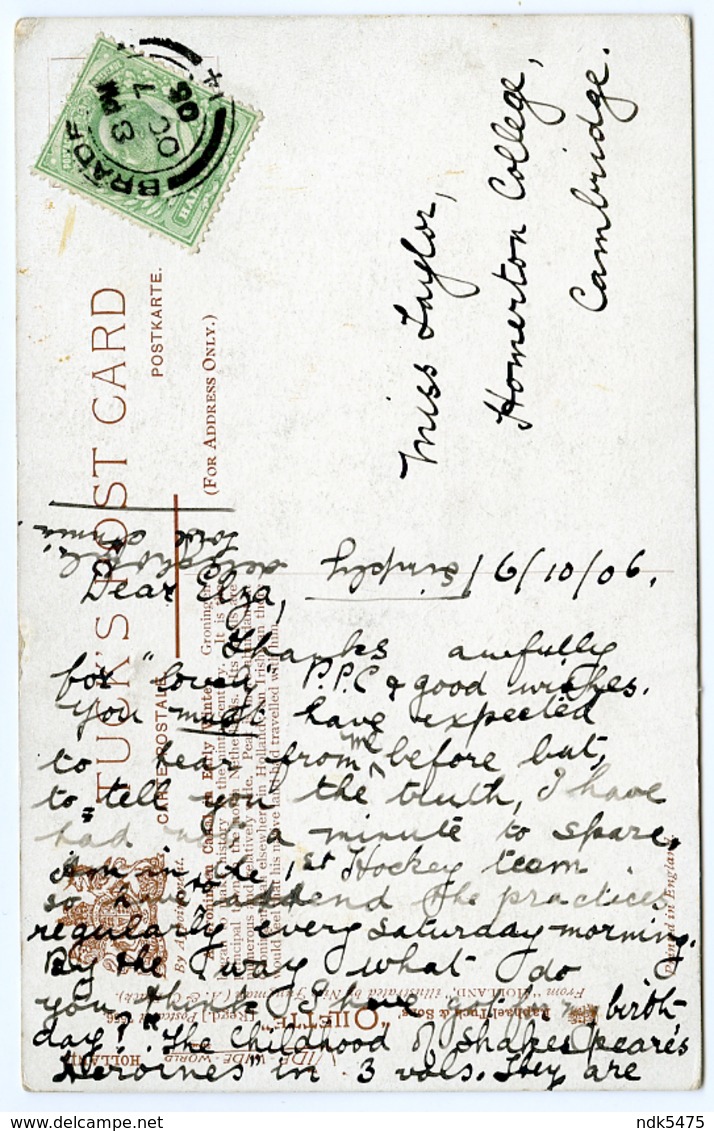 TUCK'S POST CARD
CARTE POSTALE.
POSTKARTE.
(FOR ADDRESS ONLY.)
BRADF
8 PM
OC 7
06
14
Miss Taylor,
Homerton College,
Cambridge.
6/10/06.
Dear Elza,
Thanks awfully
for "lovely" P.P.C & good wishes.
You must have expected
to hear from me before but,
to tell you the truth, I have
had not a minute to spare.
Am in the 1st Hockey team
so have to attend the practices
regularly every Saturday morning.
By the way what do
you think I have got for my birth-
day? "The Childhood of Shakespeare's
Heroines in 3 vols. They are
simply
delightful.
By Appointment.
Groningen Canal in Early Winter.
"OILETTE"
[Regd.] Postcard
Raphael Tuck & Sons'
From "HOLLAND," illustrated by Nico Jungman (A. & C. Black).
WIDE-WIDE-WORLD
HOLLAND
Printed in England
ndk5475